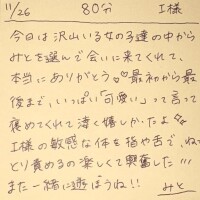 11/26 80分 I様
今日は沢山いる女の子達の中から
みとを選んで会いに来てくれて、
本当にありがとう♡♡最初から最
後まで、いっぱい「可愛い」って言って
褒めてくれて凄く嬉しかったよ
I様の敏感な体を指や舌で、ねっ
とり責めるの楽しくて興奮した!!!
また一緒に遊ぼうね!!
みと